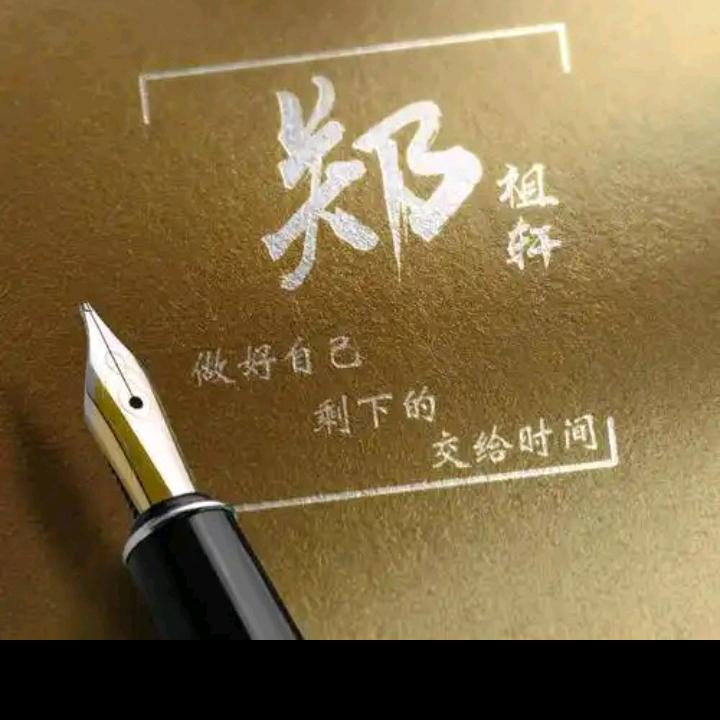 郑
祖轩
做好自己
剩下的
交给时间